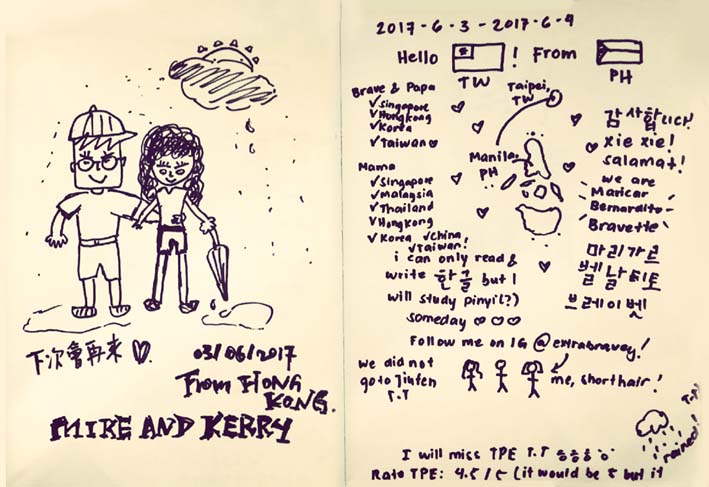 下次會再來
03/06/2017
From HONG
KONG.
MIKE AND KERRY
2017-6-3 - 2017-6-9
Hello TW! From PH
Brave & Papa
✓Singapore
✓Hongkong
✓Korea
✓Taiwan
Mama
✓Singapore
✓Malaysia
✓Thailand
✓Hongkong
✓Korea ✓China
✓Taiwan!
Taipei,
TW
Manila,
PH
감사합니다!
xie xie!
salamat!
we are
Maricar
Bernardito
Bravette
마리가르
벨날디토
브레이벳
i can only read &
write 한글 but I
will study pinyi(?)
someday
Follow me on IG @extrabravey!
we did not
go to Jiufen
T.T
me, short hair!
T.T
rained!
I will miss TPE T.T 흥흥흥
Rate TPE: 4.5/5 (it would be 5 but it